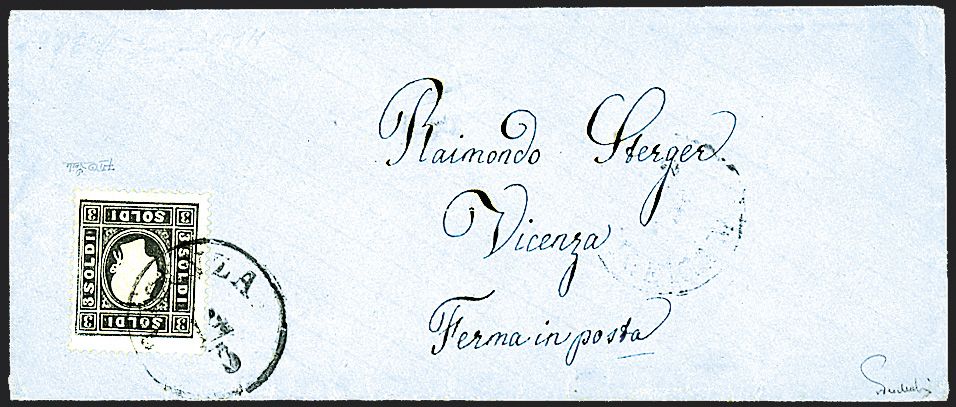 Raimondo Sterger.
Vicenza
Ferma in posta
3 SOLDI 3
3 SOLDI
3 SOLDI
3 SOLDI 3